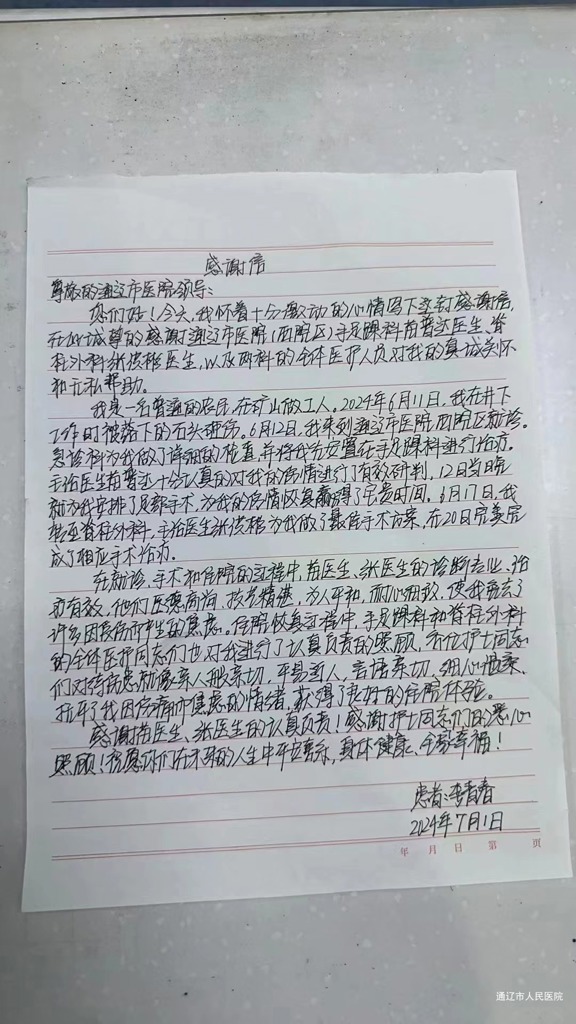 感谢信
尊敬的通辽市医院领导：
您们好！今天，我怀着十分激动的心情写下这封感谢信，
在此诚尊的感谢通辽市医院(西院区)手足踝科 医生、脊
柱外科张 医生，以及两科的全体医护人员对我的真诚关怀
和无私帮助。
我是一名普通的农民，在矿山做工人。2024年6月11日，我在井下
工作时被落下的石头砸伤。6月12日，我来到通辽市医院西院区就诊。
急诊科为我做了详细的检查，并将我分安置在手足踝科进行治疗。
主治医生 十分认真的对我的病情进行了有效研判，12日当晚
就为我安排了足部手术，为我的病情恢复赢得了宝贵时间。6月17日，我
转至脊柱外科，主治医生张 为我做了最佳手术方案，在20日完美完
成了相应手术治疗。
在就诊、手术和住院的过程中， 医生、张医生的诊断专业、治
疗有效，他们医德高尚，技艺精湛，为人平和，耐心细致，使我免去了
许多因疾病而产生的焦虑。住院恢复过程中，手足踝科和脊柱外科
的全体医护同志们也对我进行了认真负责的照顾，各位护士同志
们对待病患就像亲人般亲切，平易近人，言语亲切，细心温柔，
抚平了我因伤痛而焦虑的情绪，获得了良好的住院体验。
感谢 医生、张医生的认真负责！感谢护士同志们的悉心
照顾！祝愿你们在未来的人生中平安喜乐，身体健康、全家幸福！
患者：李青春
2024年7月1日
年 月 日 第 页
通辽市人民医院